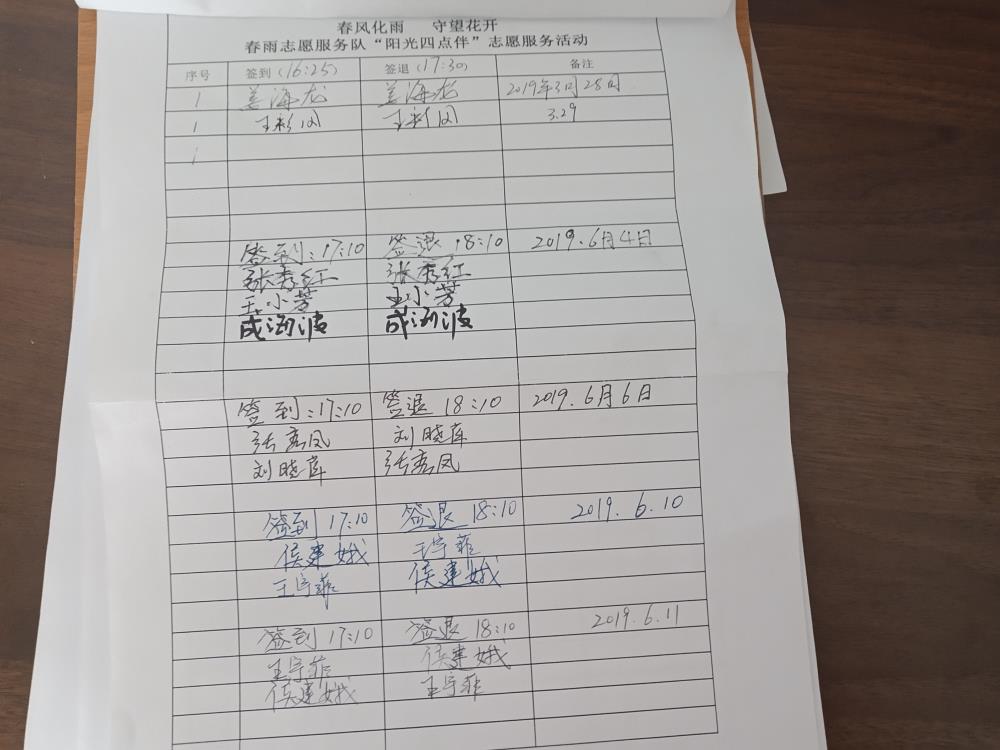 春风化雨 守望花开
春雨志愿服务队“阳光四点伴”志愿服务活动
序号 签到(16:25) 签退(17:30) 备注
1 姜海龙 姜海龙 2019年3月28日
1 王彩闪 王彩闪 3.29
1
签到:17:10 签退 18:10 2019.6月4日
张秀红 张秀红
王小芳 王小芳
成涵波 成涵波
签到:17:10 签退 18:10 2019.6月6日
张秀凤 刘晓库
刘晓库 张秀凤
签到 17:10 签退 18:10 2019.6.10
侯建娥 王宇菲
王宇菲 侯建娥
签到 17:10 签退 18:10 2019.6.11
王宇菲 侯建娥
侯建娥 王宇菲